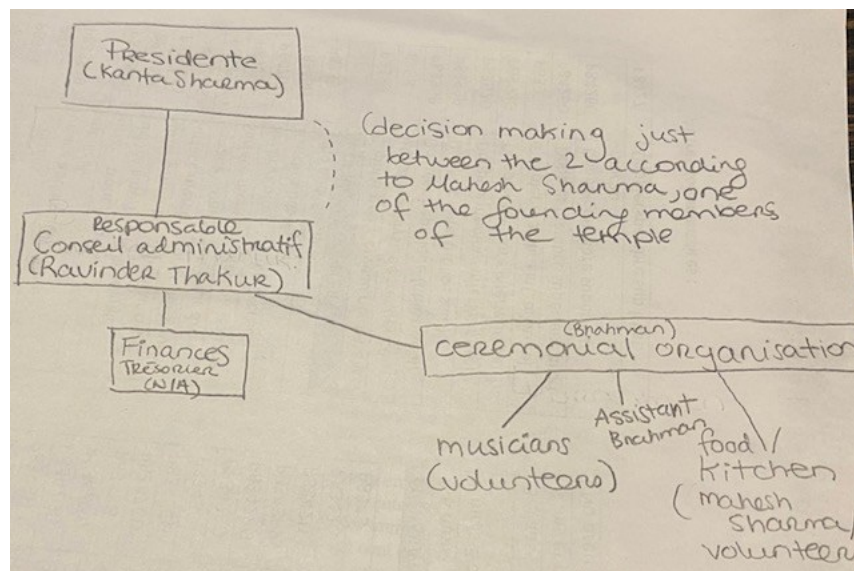 Presidente
(Kanta Sharma)
(decision making just
between the 2 according
to Mahesh Sharma, one
of the founding members
of the temple
Responsable
Conseil administratif
(Ravinder Thakur)
Finances
Trésorier
(N/A)
(Brahman)
ceremonial organisation
musicians
(volunteers)
Assistant
Brahman
food /
Kitchen
(mahesh
Sharma/
volunteer